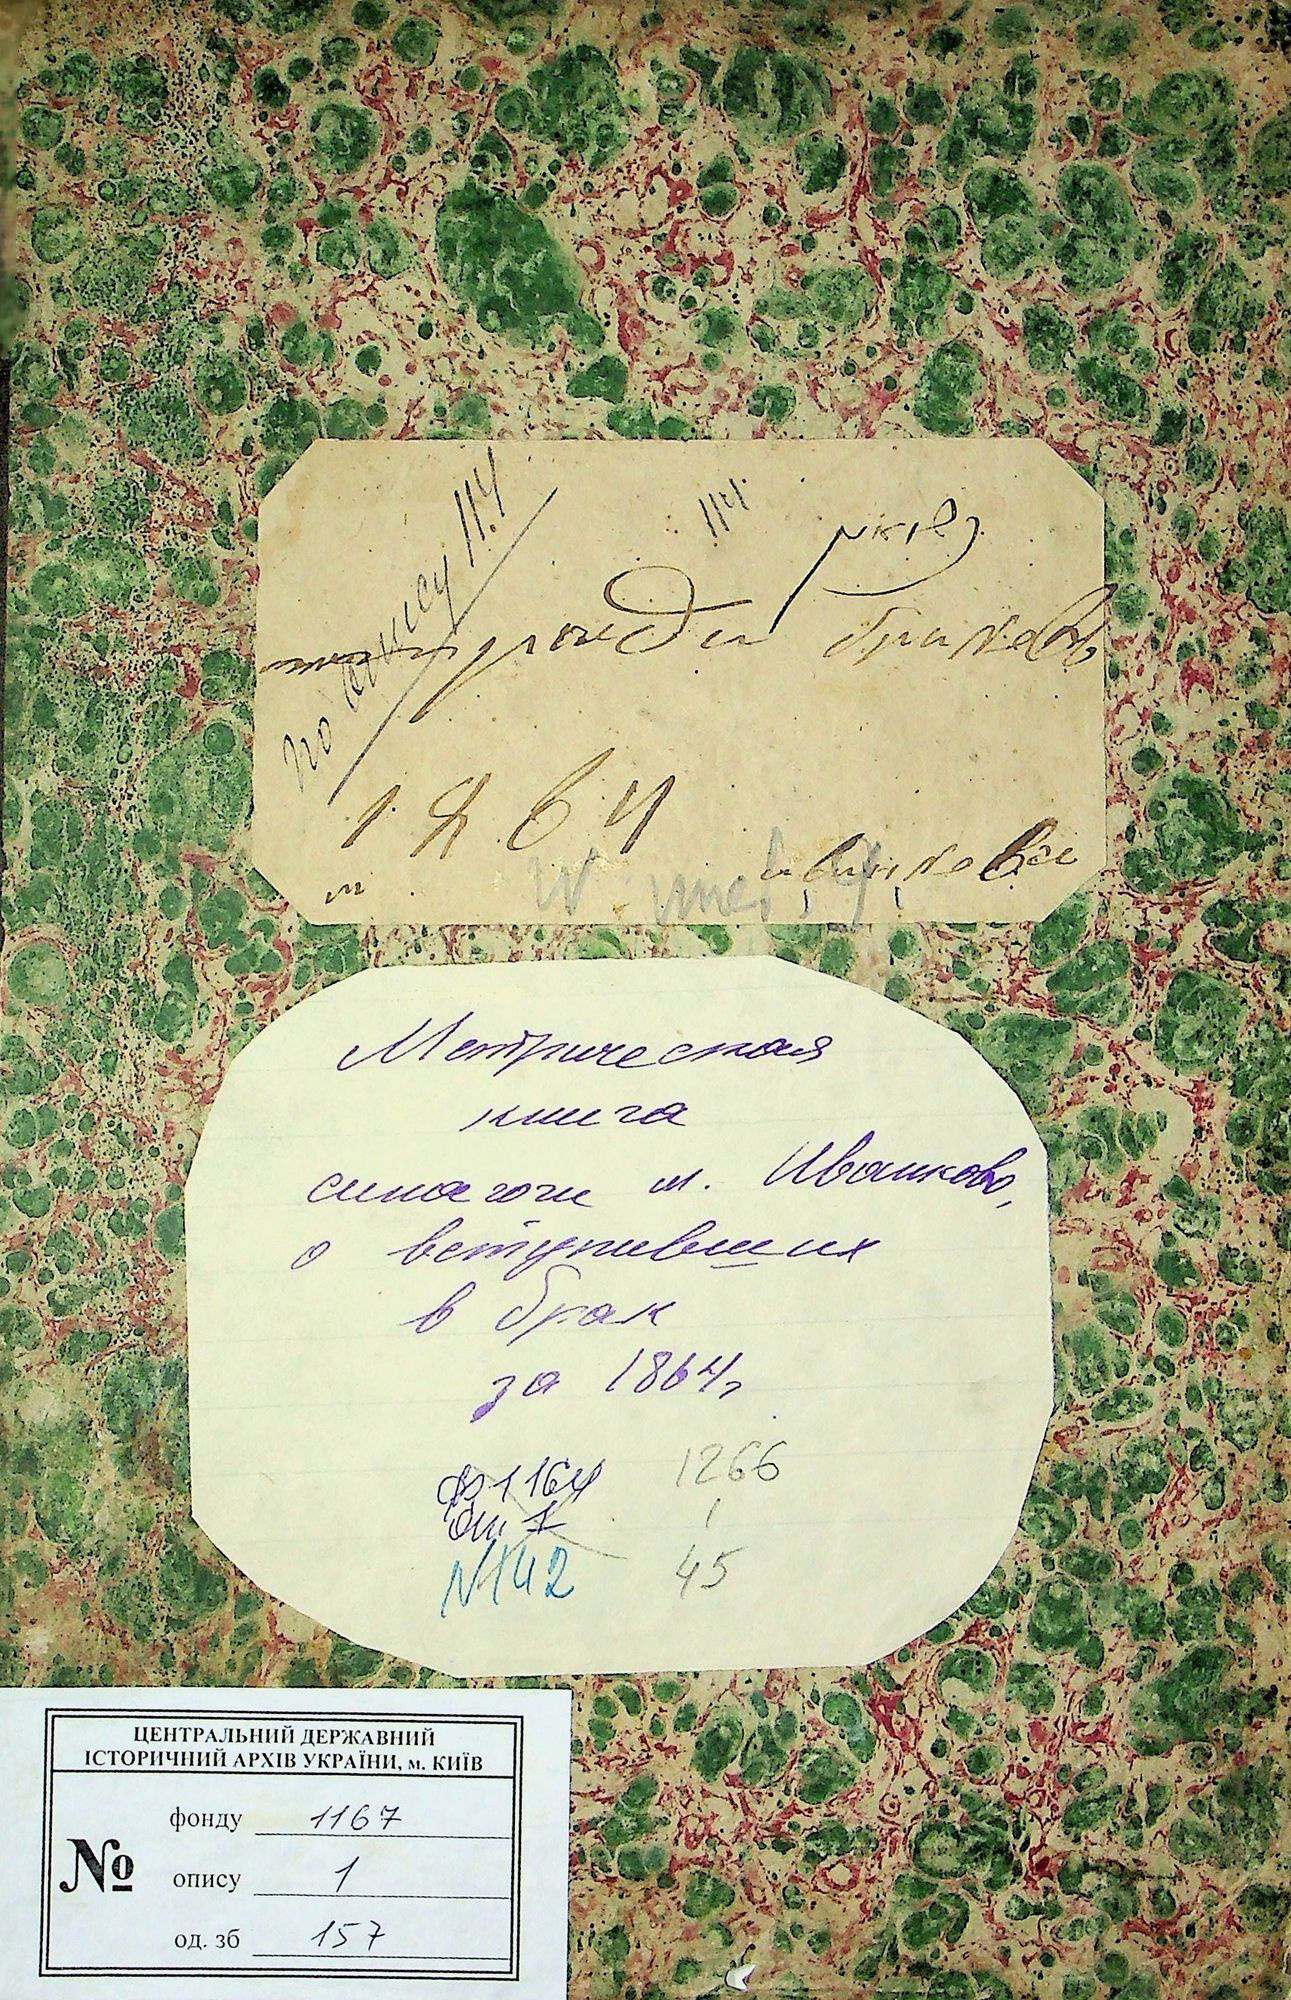 по опису 114
114
браковъ
1864
м
Метрическая
книга
синагоги м. Иванково,
о вступивших
в брак
за 1864г
ф 1164 1266
оп 1 1
N142 45
ЦЕНТРАЛЬНИЙ ДЕРЖАВНИЙ
ІСТОРИЧНИЙ АРХІВ УКРАЇНИ, м. КИЇВ
№
фонду 1167
опису 1
од. зб 157